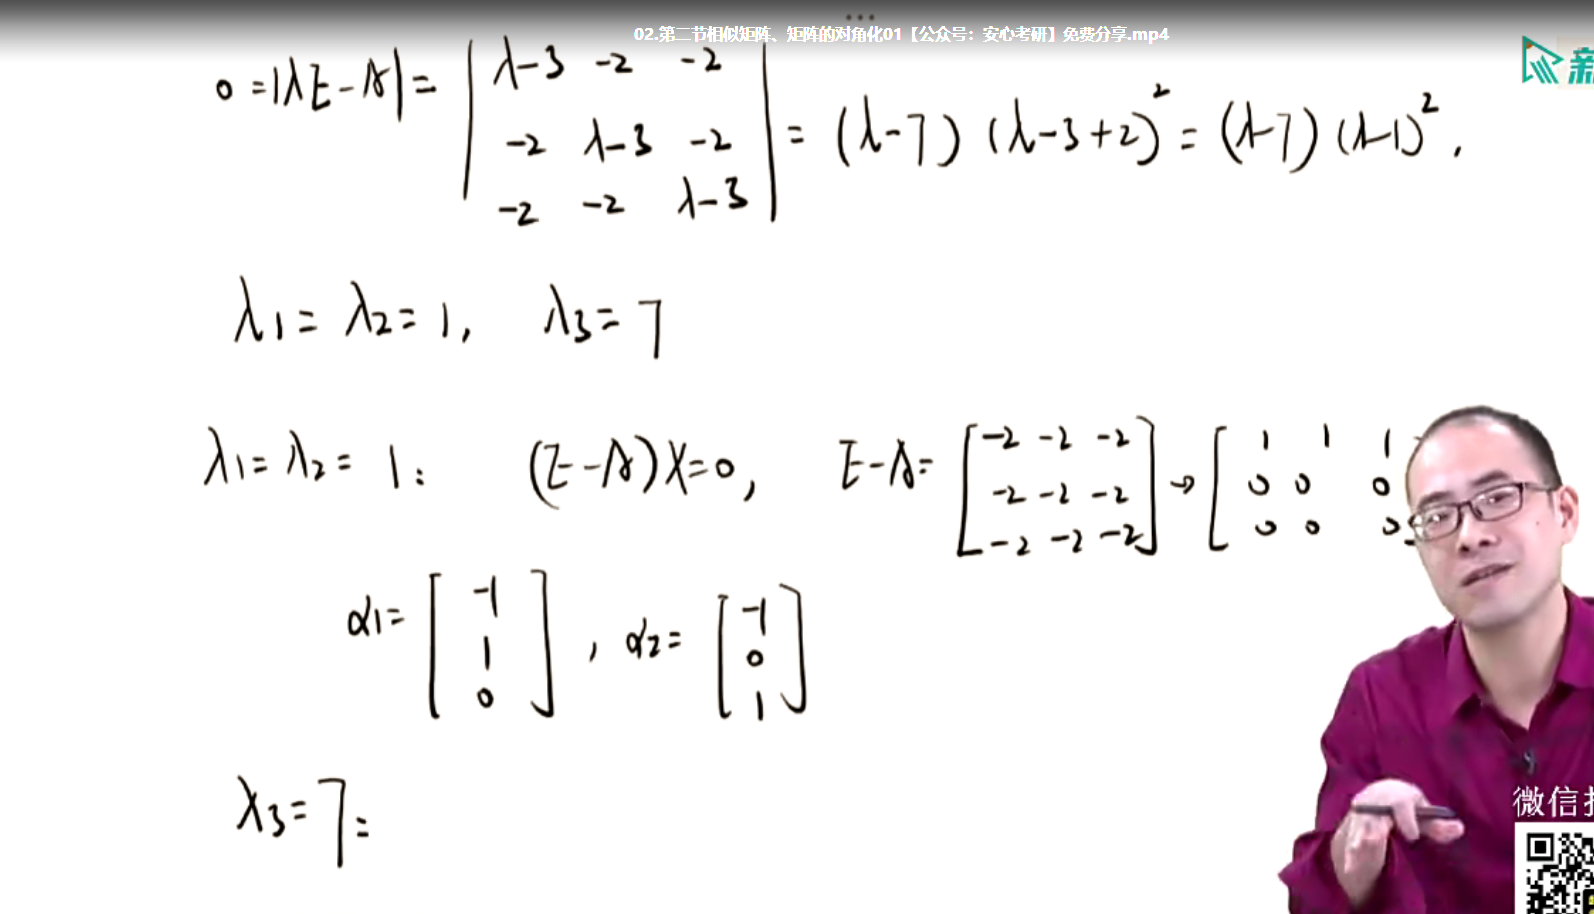 02.第二节相似矩阵、矩阵的对角化01【公众号：安心考研】免费分享.mp4
新
0 = |λE - A| = | λ-3 -2 -2 | = (λ-7) (λ-3+2)² = (λ-7) (λ-1)² .
-2 λ-3 -2
-2 -2 λ-3
λ1 = λ2 = 1, λ3 = 7
λ1 = λ2 = 1: (E-A)X=0, E-A= [ -2 -2 -2 ] → [ 1 1 1
-2 -2 -2 0 0 0
-2 -2 -2 0 0 0
α1= [ -1 1 0 ] , α2= [ -1 0 1 ]
λ3 = 7:
微信